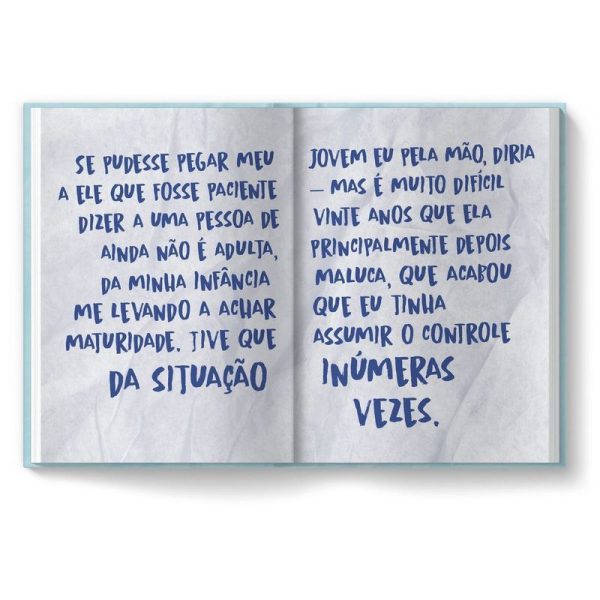 SE PUDESSE PEGAR MEU JOVEM EU PELA MÃO, DIRIA
A ELE QUE FOSSE PACIENTE — MAS É MUITO DIFÍCIL
DIZER A UMA PESSOA DE VINTE ANOS QUE ELA
AINDA NÃO É ADULTA, PRINCIPALMENTE DEPOIS
DA MINHA INFÂNCIA MALUCA, QUE ACABOU
ME LEVANDO A ACHAR QUE EU TINHA
MATURIDADE. TIVE QUE ASSUMIR O CONTROLE
DA SITUAÇÃO INÚMERAS
VEZES.